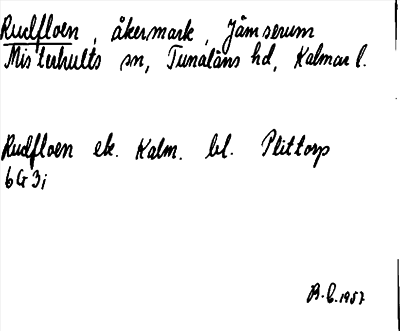 Rudfloen, åkermark, Jämserum
Misterhults sn, Tunaläns hd, Kalmar l.
Rudfloen ek. Kalm. bl. Plittorp
6G3i
B.C. 1957